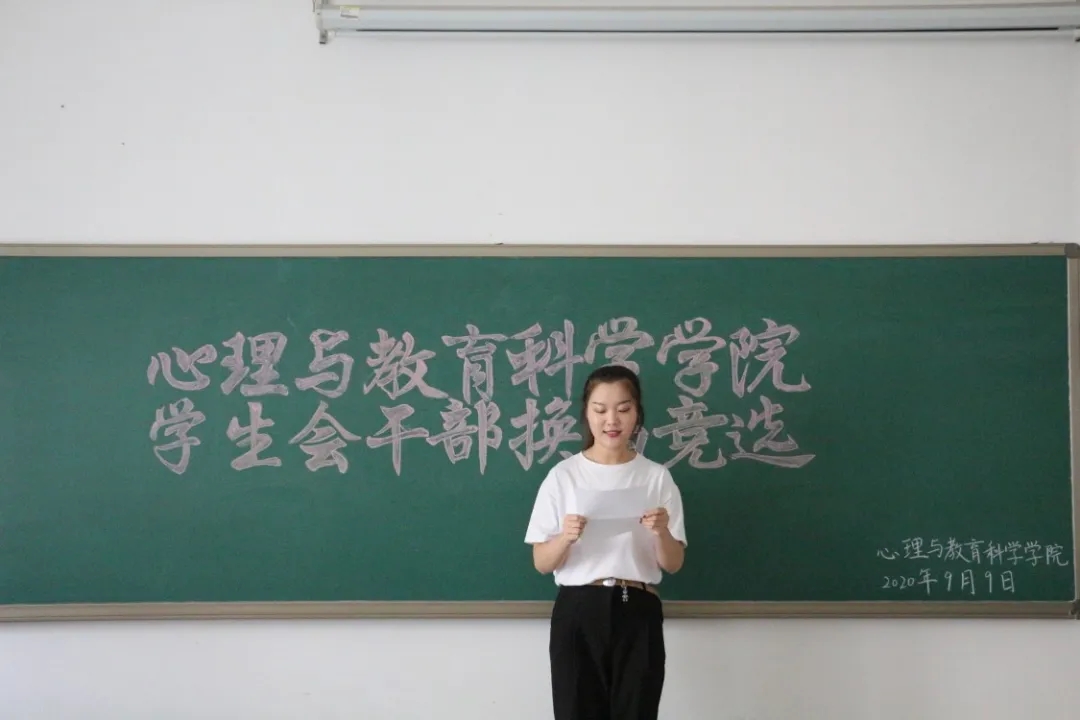 心理与教育科学学院
学生会干部换竞选
心理与教育科学学院
2020年9月9日